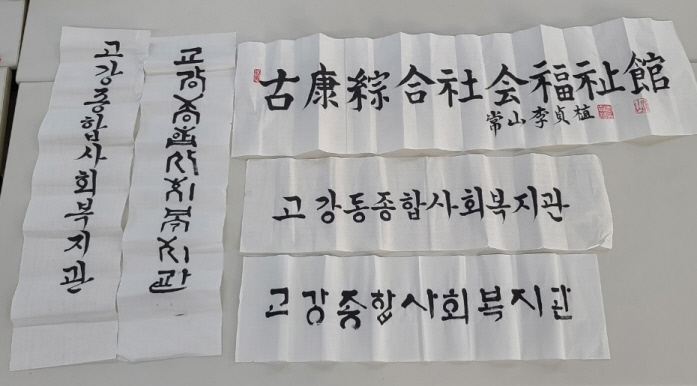 고강종합사회복지관
고강종합사회복지관
古康綜合社会福祉館
常山李貞植
고강동종합사회복지관
고강종합사회복지관